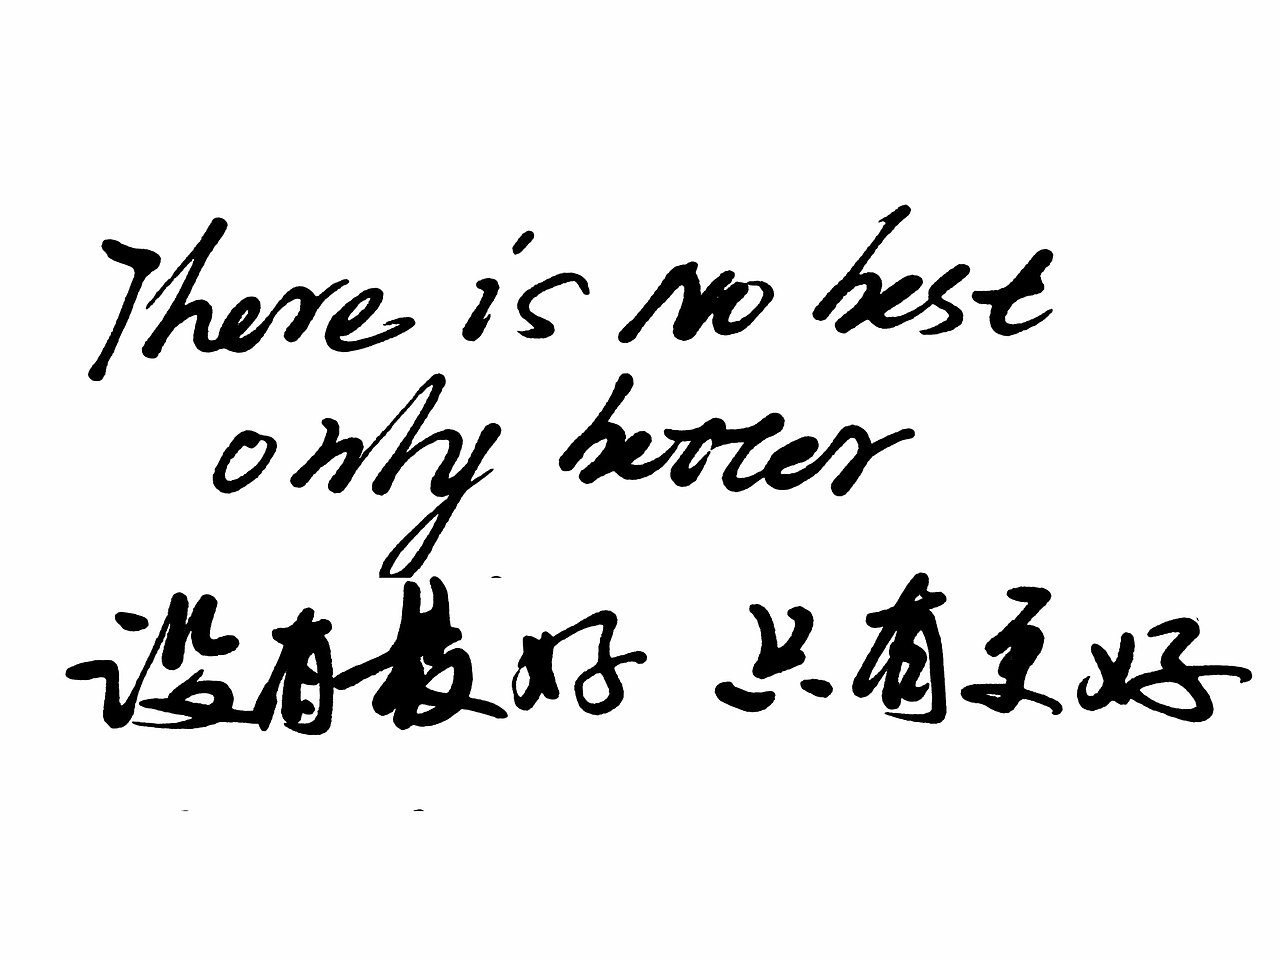 There is No best
only better
没有最好 只有更好